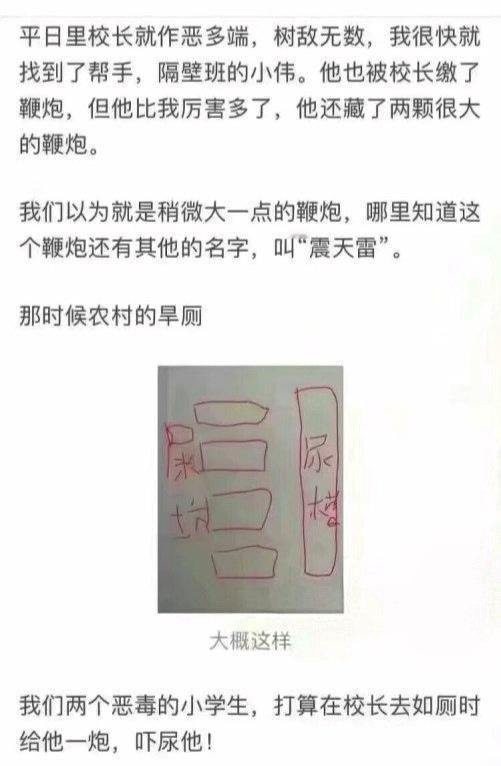 平日里校长就作恶多端，树敌无数，我很快就
找到了帮手，隔壁班的小伟。他也被校长缴了
鞭炮，但他比我厉害多了，他还藏了两颗很大
的鞭炮。
我们以为就是稍微大一点的鞭炮，哪里知道这
个鞭炮还有其他的名字，叫“震天雷”。
那时候农村的旱厕
屎坑
尿槽
大概这样
我们两个恶毒的小学生，打算在校长去如厕时
给他一炮，吓尿他！